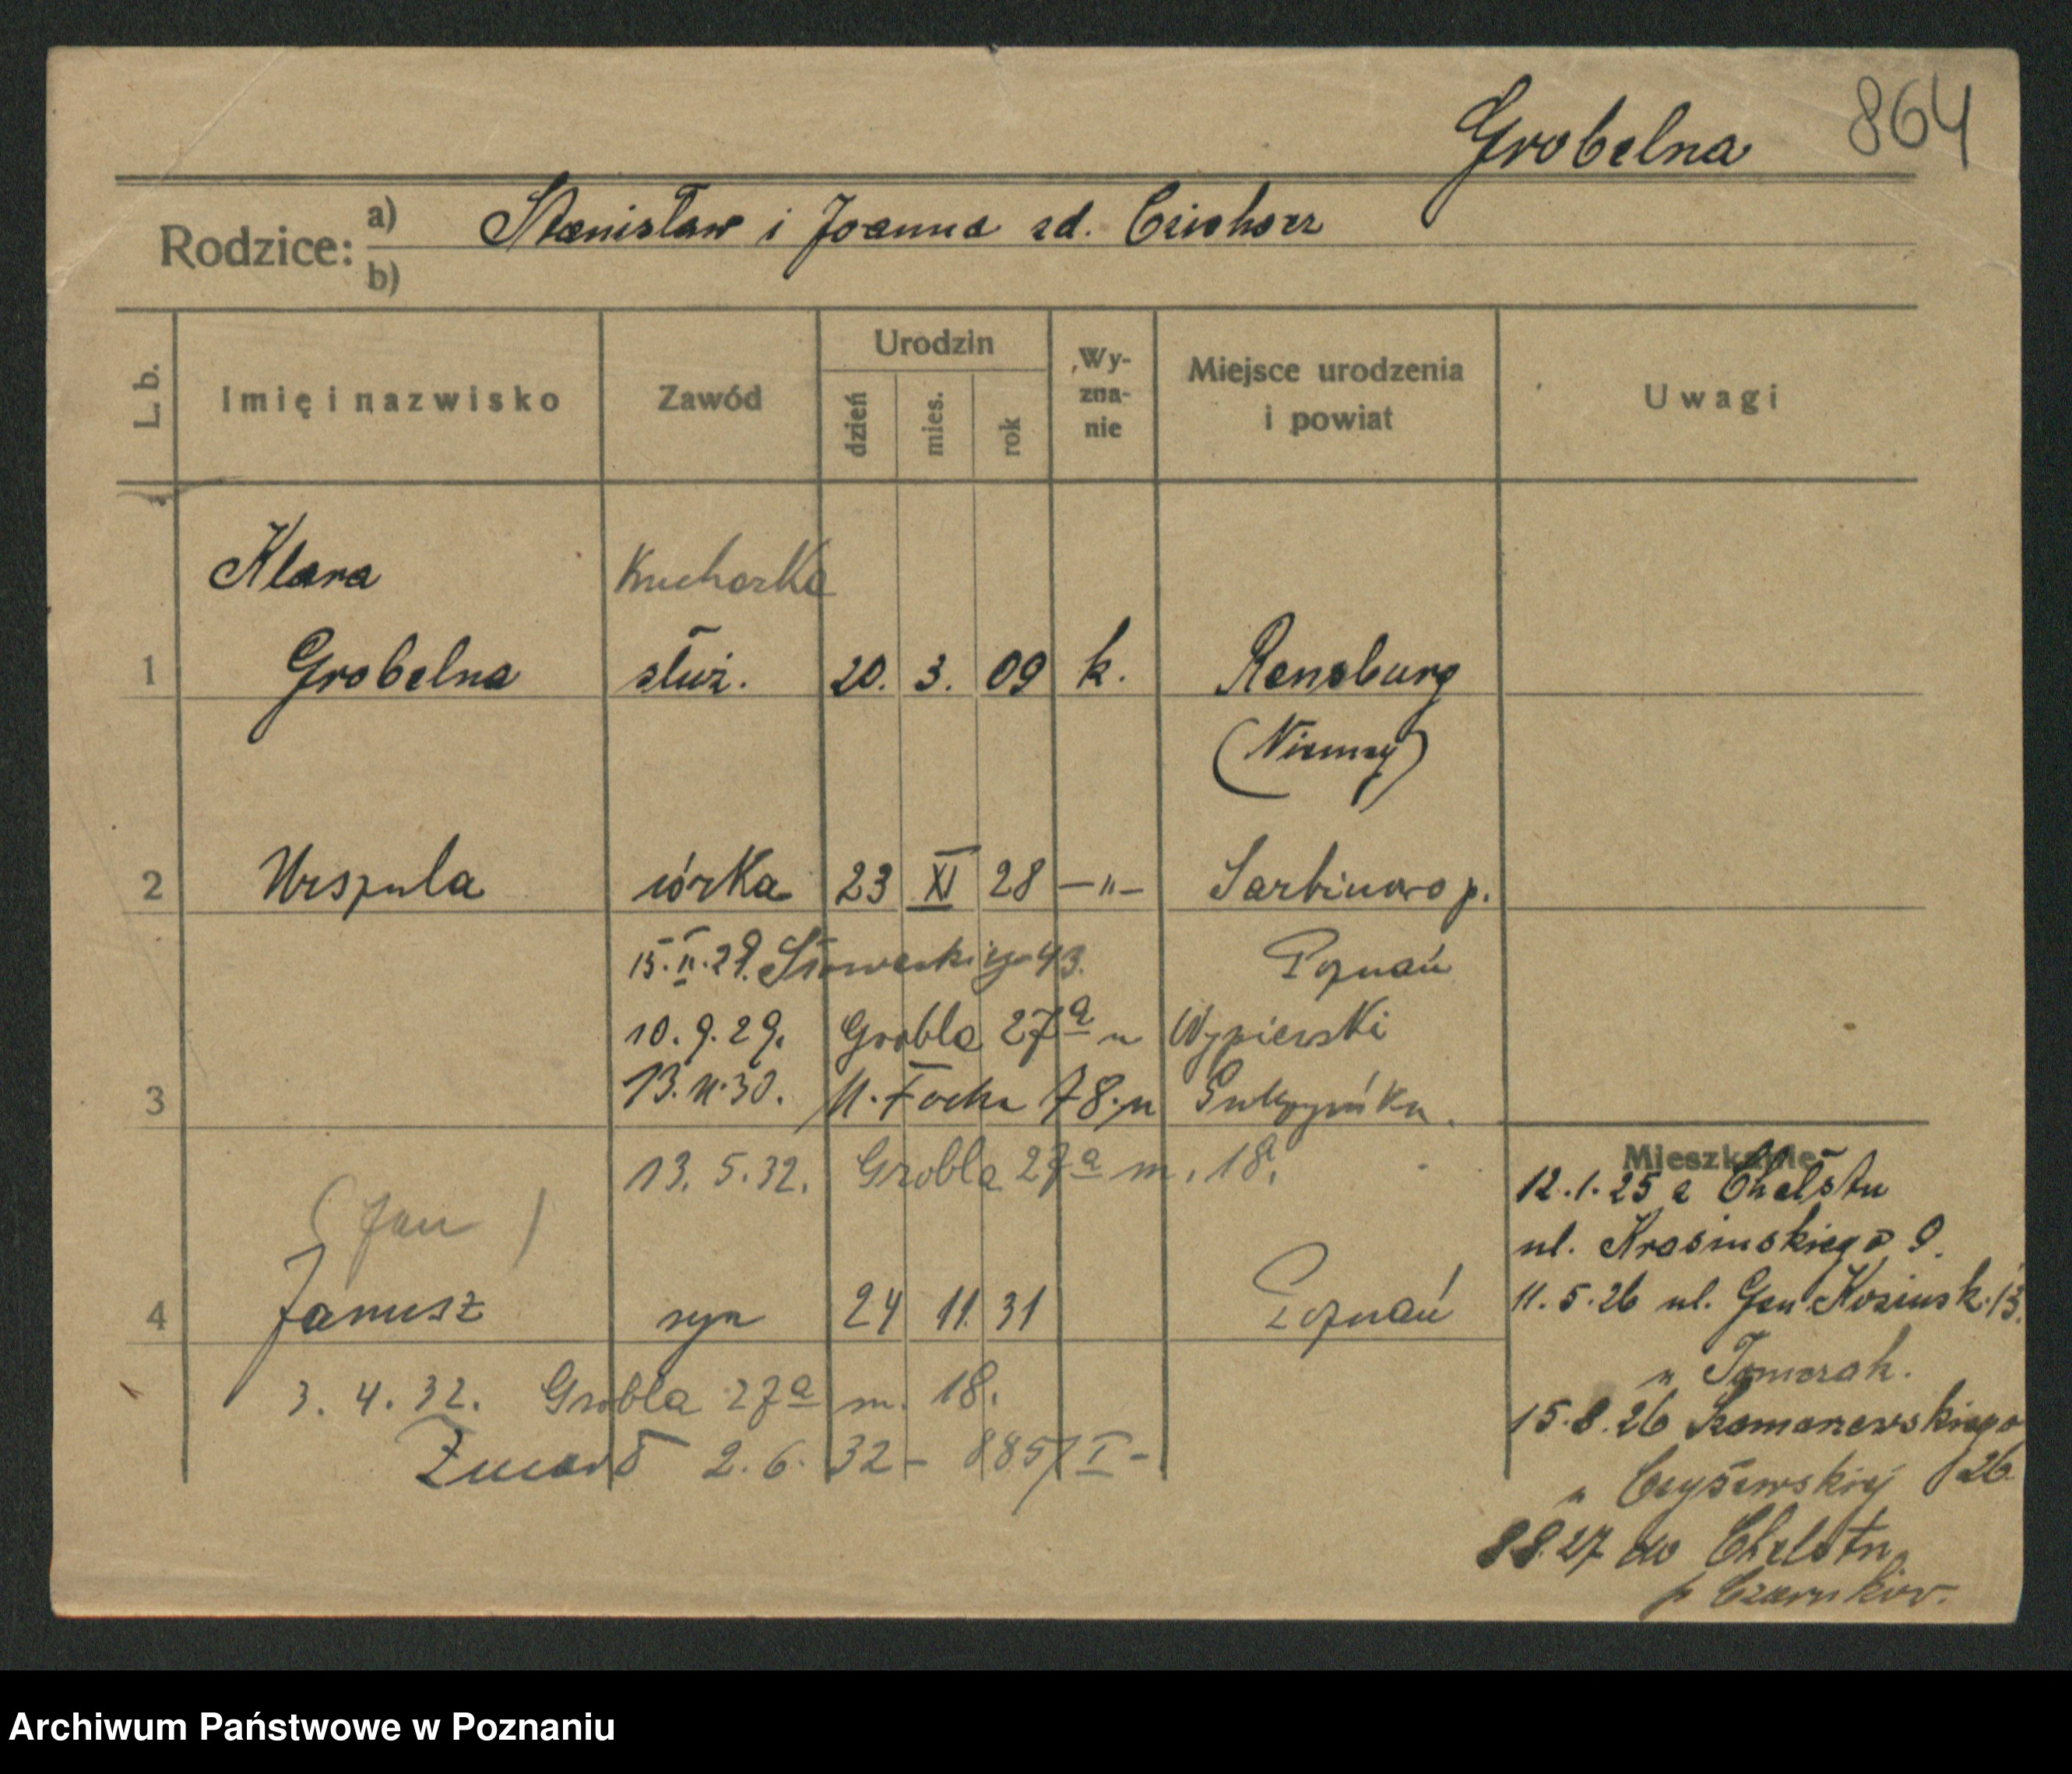 Grobelna 864
Rodzice: a) Stanisław i Joanna zd. Cziehorz
b)
L. b. Imię i nazwisko Zawód Urodzin dzień mies. rok Wyznanie Miejsce urodzenia i powiat Uwagi
Klara Kucharka
1 Grobelna służ. 20. 3. 09 k. Rensburg
(Niemcy)
2 Urszula córka 23 XI 28 —"— Sarbinowo p.
15.II.29. Słowackiego 43. Poznań
10.9.29. Grobla 27a u Wypierski
3 13.11.30. M. Focha 78. u
13.5.32. Grobla 27a m. 18.
(Jan)
4 Janusz syn 24 11 31 Poznań
3.4.32. Grobla 27a m. 18.
2.6.32 – 8857/I –
Mieszkanie
12.1.25 z Chelstu
ul. Krasinskiego 9.
11.5.26 ul. Gen. Kosinsk. 13.
" Tomczak.
15.8.26 Szamarzewskiego
26
8.8.27 do Chelstu
p Czarnków.
Archiwum Państwowe w Poznaniu